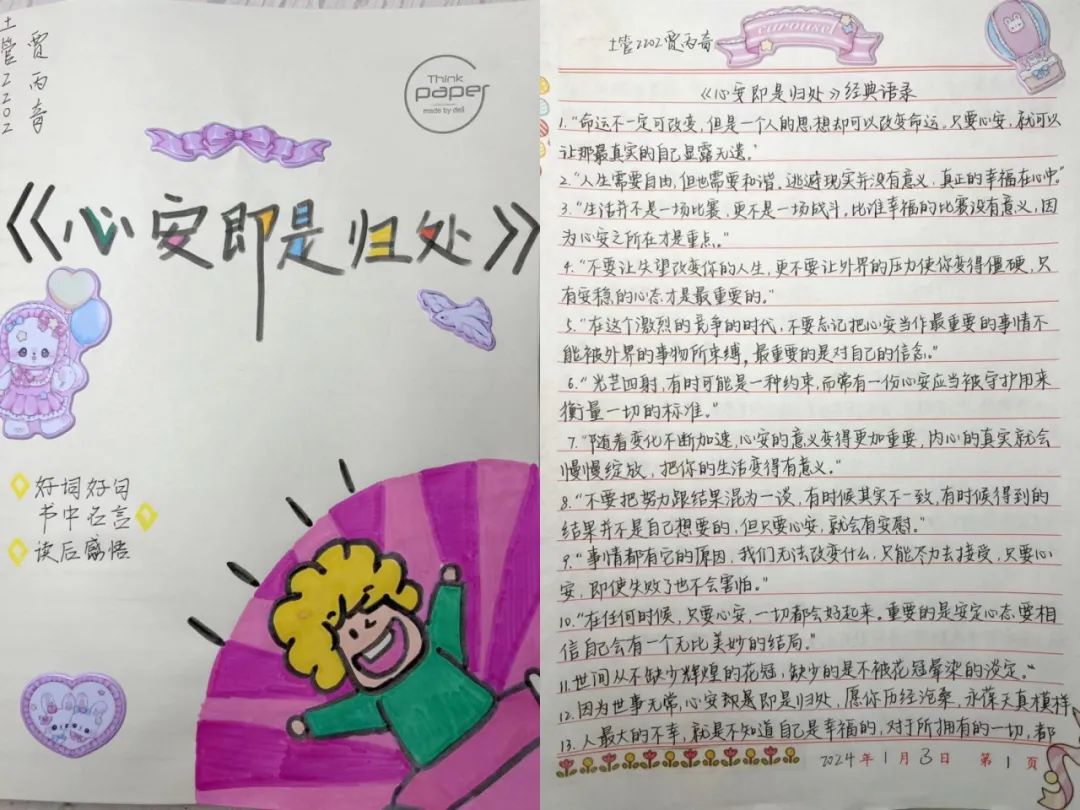 土管2202
贾丙奇
Think
paper
made by deli
《心安即是归处》
好词好句
书中名言
读后感悟
carousel
土管2202贾丙奇
《心安即是归处》经典语录
1."命运不一定可改变,但是一个人的思想却可以改变命运。只要心安,就可以
让那最真实的自己显露无遗."
2."人生需要自由,但也需要和谐。逃避现实并没有意义,真正的幸福在心中."
3."生活并不是一场比赛,更不是一场战斗,比谁幸福的比赛没有意义,因
为心安之所在才是重点。"
4."不要让失望改变你的人生,更不要让外界的压力使你变得僵硬,只
有安稳的心态才是最重要的."
5."在这个激烈的竞争的时代,不要忘记把心安当作最重要的事情不
能被外界的事物所束缚,最重要的是对自己的信念。"
6."光芒四射,有时可能是一种约束,而常有一份心安应当被守护用来
衡量一切的标准。"
7."随着变化不断加速,心安的意义变得更加重要,内心的真实就会
慢慢绽放,把你的生活变得有意义。"
8."不要把努力跟结果混为一谈,有时候其实不一致,有时候得到的
结果并不是自己想要的,但只要心安,就会有安慰."
9."事情都有它的原因,我们无法改变什么,只能尽力去接受,只要心
安,即使失败了也不会害怕."
10."在任何时候,只要心安,一切都会好起来。重要的是安定心态,要相
信自己会有一个无比美妙的结局."
11.世间从不缺少辉煌的花冠,缺少的是不被花冠晕染的淡定."
12.因为世事无常,心安即是即是归处,愿你历经沧桑,永葆天真模样
13.人最大的不幸,就是不知道自己是幸福的,对于所拥有的一切,都
2024年1月3日 第1页